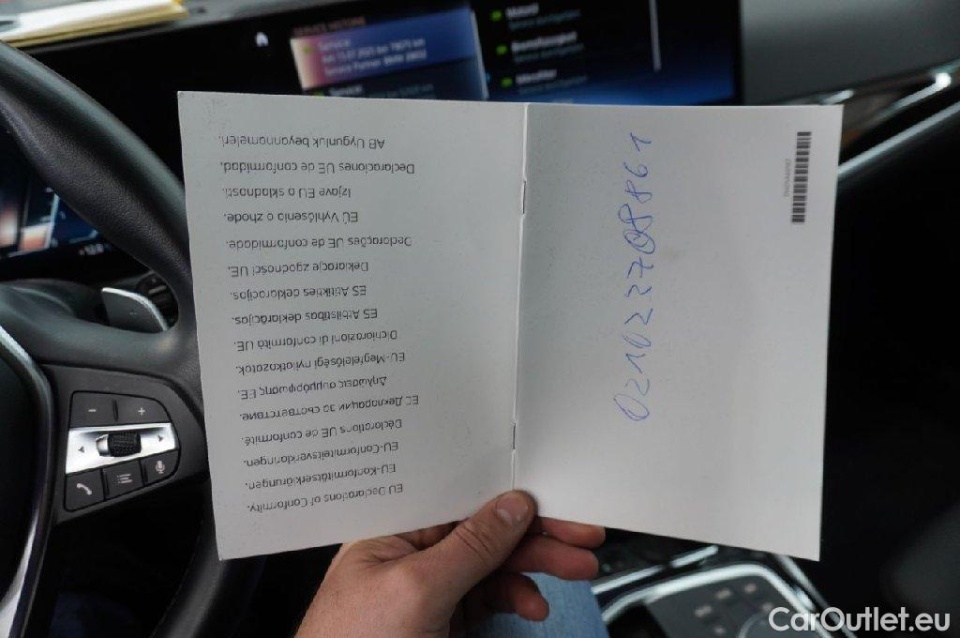 SERVICE HISTORIE
Service
EU Declarations of Conformity.
EU-Konformitätserklärungen.
EU-Conformiteitsverklaringen.
Déclarations UE de conformité.
ЕС Декларации за съответствие.
Δηλώσεις συμμόρφωσης ΕΕ.
EU-Megfelelőségi nyilatkozatok.
Dichiarazioni di conformità UE.
ES Atbilstības deklarācijas.
ES Atitikties deklaracijos.
Deklaracje zgodności UE.
Declarações UE de conformidade.
EÚ Vyhlásenia o zhode.
Izjave EU o skladnosti.
Declaraciones UE de conformidad.
AB Uygunluk beyannameleri.
021022708861
CarOutlet.eu